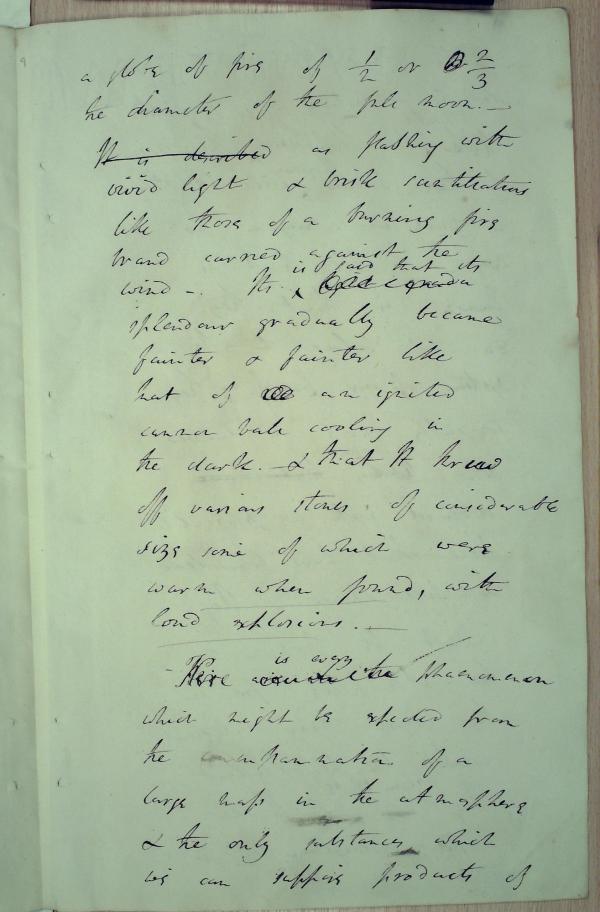 a globe of fire of 1/2 or 2/3
the diameter of the full moon. —
It is described as flashing with
vivid light & brisk scintillations
like those of a burning fire
brand carried against the
is said that its
wind —. Its
splendour gradually became
fainter & fainter like
that of an ignited
cannon ball cooling in
the dark. — & that it threw
off various stones of considerable
size some of which were
warm when found, with
loud explosions. —
is every
- There phaenomenon
which might be expected from
the inflammation of a
large mass in the atmosphere
& the only substances which
we can suppose products of